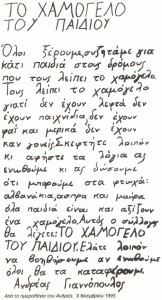 ΤΟ ΧΑΜΟΓΕΛΟ
ΤΟΥ ΠΑΙΔΙΟΥ
Όλοι ξέρουμε, συζητάμε για
κάτι παιδιά στους δρόμους
που τους λείπει το χαμόγελο.
Τους λείπει το χαμόγελο
γιατί δεν έχουν λεφτά δεν
έχουν παιχνίδια, δεν έχουν
φαΐ και μερικά δεν έχουν
καν γονείς. Σκεφτήτε λοιπόν
κι αφήστε τα λόγια ας
ενωθούμε κι ας δώσουμε
ότι μπορούμε στα φτωχά:
αλβανάκια, άσπρα και μαύρα
όλα παιδιά είναι και αξίζουν
ένα χαμόγελο. Αυτός ο σύλλογος
θα λέγεται: ΤΟ ΧΑΜΟΓΕΛΟ
ΤΟΥ ΠΑΙΔΙΟΥ. Ελάτε λοιπόν
να βοηθήσουμε αν ενωθούμε
όλοι θα τα καταφέρουμε
Ανδρέας Γιαννόπουλος
Από το ημερολόγιο του Ανδρέα, 9 Νοεμβρίου 1995